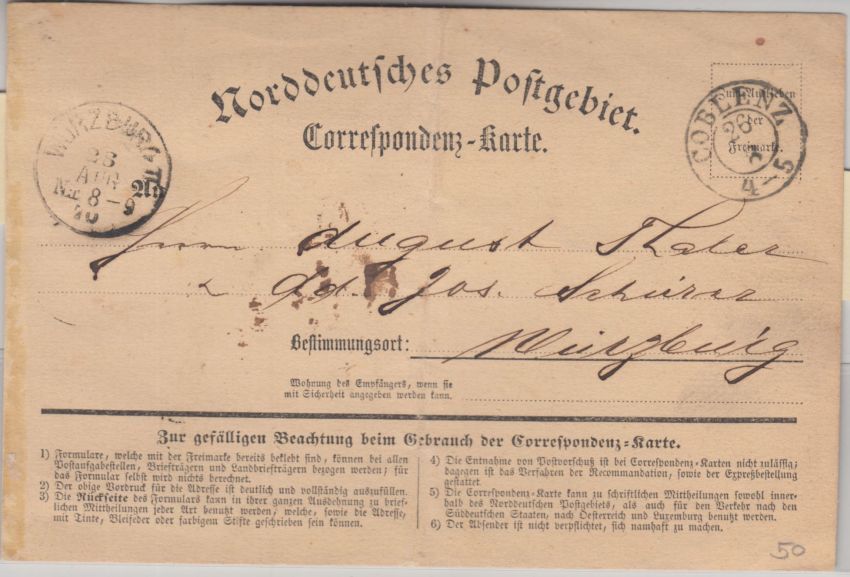 Norddeutsches Postgebiet.
Correspondenz-Karte.
Zum Aufkleben
der
Freimarke.
COBLENZ
28
8
4-5
WÜRZBURG II
28
AUG
Nm 8-9
70
An
Herrn August Thaler
Adr. Jos. Schürer
Bestimmungsort: Würzburg
Wohnung des Empfängers, wenn sie
mit Sicherheit angegeben werden kann.
Zur gefälligen Beachtung beim Gebrauch der Correspondenz-Karte.
1) Formulare, welche mit der Freimarke bereits beklebt sind, können bei allen
Postaufgabestellen, Briefträgern und Landbriefträgern bezogen werden; für
das Formular selbst wird nichts berechnet.
2) Der obige Vordruck für die Adresse ist deutlich und vollständig auszufüllen.
3) Die Rückseite des Formulars kann in ihrer ganzen Ausdehnung zu brief-
lichen Mittheilungen jeder Art benutzt werden; welche, sowie die Adresse,
mit Tinte, Bleifeder oder farbigem Stifte geschrieben sein können.
4) Die Entnahme von Postvorschuß ist bei Correspondenz-Karten nicht zulässig;
dagegen ist das Verfahren der Recommandation, sowie der Expreßbestellung
gestattet.
5) Die Correspondenz-Karte kann zu schriftlichen Mittheilungen sowohl inner-
halb des Norddeutschen Postgebiets, als auch für den Verkehr nach den
Süddeutschen Staaten, nach Oesterreich und Luxemburg benutzt werden.
6) Der Absender ist nicht verpflichtet, sich namhaft zu machen.
50